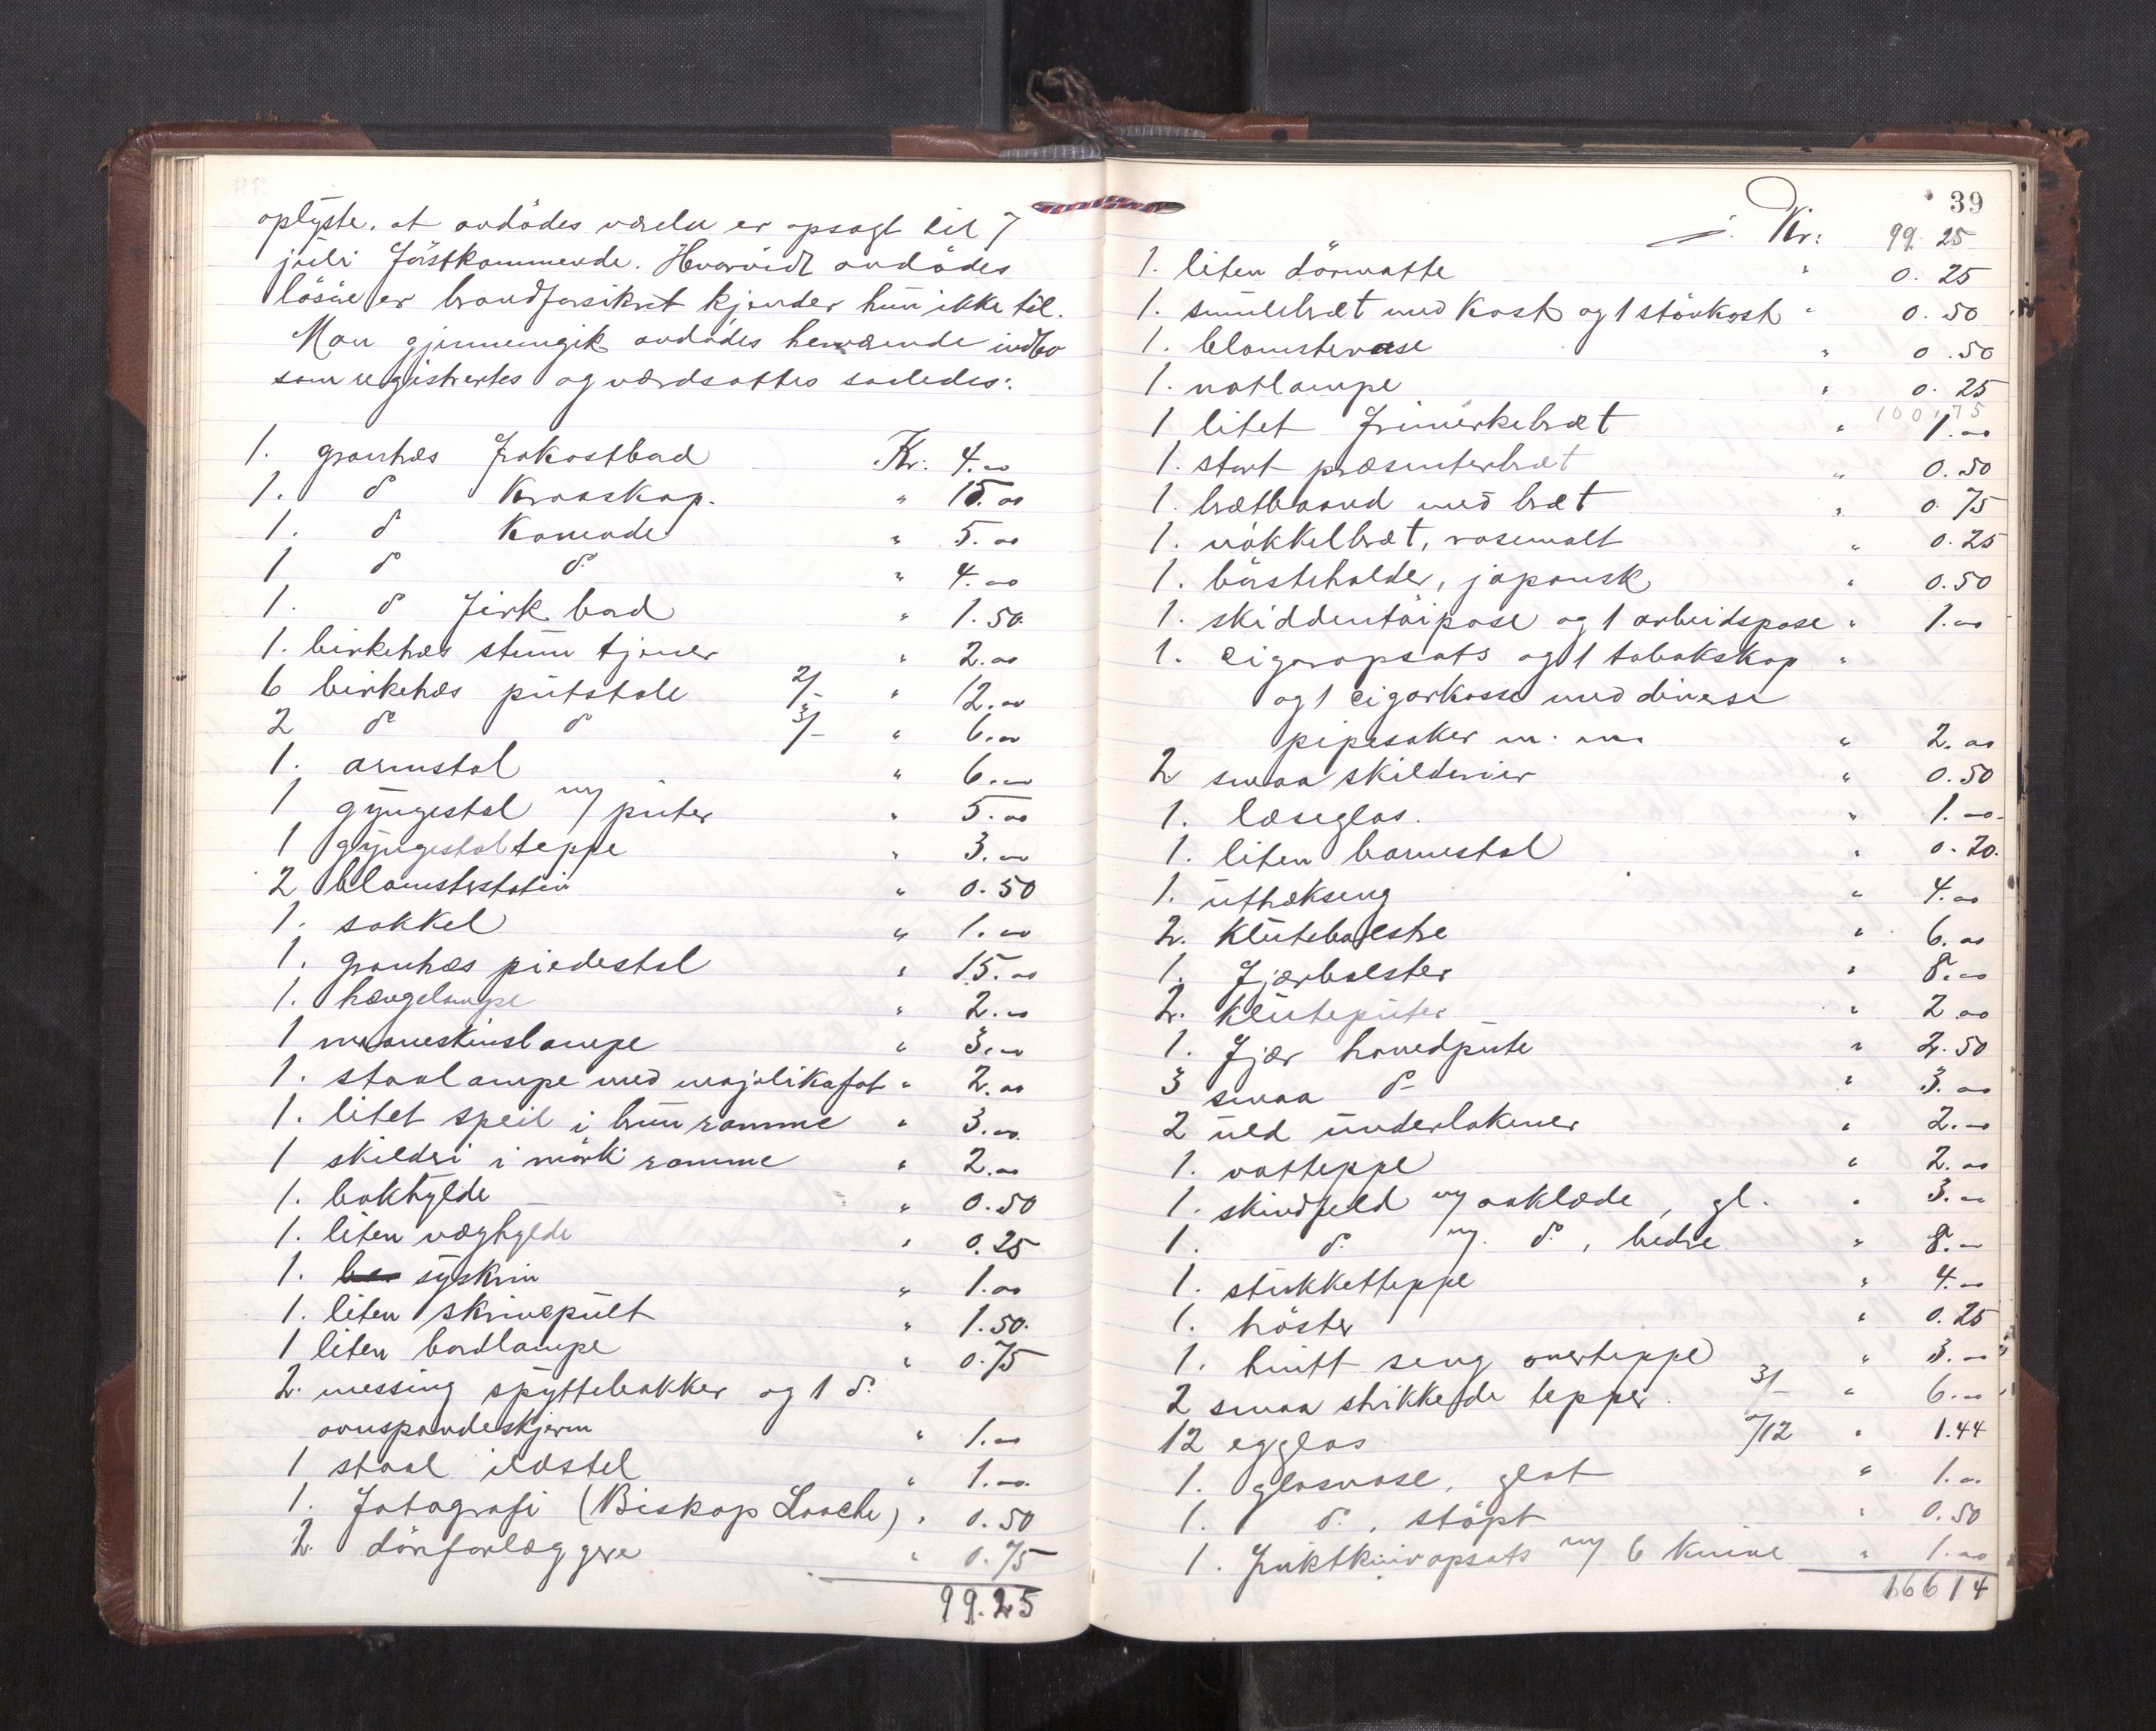 oplyste, at avdödes værelse er opsagt til 7
juli förstkommende. Hvorvidt avdödes
lösöre er brandforsikret kjender hun ikke til.
Man gjennemgik avdödes henværende indbo
som registrertes og værdsattes saaledes:
1. grantræs frokostbord Kr: 4.00
1. do Kroaskap. " 15.00
1. do Komode " 5.00
1 do do " 4.00
1. do firk. bord " 1.50
1. birketræs stum tjener " 2.00
6 birketræs pütstole 2/- " 12.00
2 do do 3/- " 6.00
1. armstol " 6.00
1 gyngestol m/ puter " 5.00
1 gyngestolteppe " 3.00
2 blomsterstativ " 0.50
1. sokkel " 1.00
1. grantræs piedestal " 15.00
1. hængelampe " 2.00
1 maaneskinslampe " 3.00
1. staalampe med majolikafot " 2.00
1. litet speil i brun ramme " 3.00
1 skilderi i mörk ramme " 2.00
1. bokhylde " 0.50
1. liten væghylde " 0.25
1. syskrin " 1.00
1. liten skrivepult " 1.50
1 liten bordlampe " 0.75
2. messing spyttebakker og 1 do.
ovnspandeskjerm " 1.00
1 staal ildstel " 1.00
1. fotografi (Biskop Laache) " 0.50
2. dörforlæggere " 0.75
99.25
39
Kr: 99.25
1. liten dörmatte " 0.25
1. smulebræt med kost og 1 stövkost " 0.50
1. blomstervase " 0.50
1. natlampe " 0.25
100,75
1 litet frimerkebræt " 1.00
1. stort præsenterbræt " 0.50
1. brætbaand med bræt " 0.75
1. nökkelbræt, rosemalt " 0.25
1. börsteholder, japansk " 0.50
1. skiddentöipose og 1 arbeidspose " 1.00
1. cigaropsats og 1 tobakskop "
og 1 cigarkasse med diverse
pipesaker m. m. " 2.00
2 smaa skilderier " 0.50
1. læseglas. " 1.00
1. liten barnestol " 0.20
1. uttrækseng " 4.00
2. klutebolstre " 6.00
1. fjærbolster " 8.00
2. kluteputer " 2.00
1. fjær hovedpute " 2.50
3 smaa do " 3.00
2 uld underlakener " 2.00
1. vatteppe " 2.00
1. skindfeld m/ aaklæde, gl. " 3.00
1. do. m/. do., bedre " 8.00
1. stukketteppe " 4.00
1. tröster " 0.25
1. hvitt seng overteppe " 3.00
2 smaa strikkede tepper. 3/- " 6.00
12 egglas /12 " 1.44
1. glasvase, glat " 1.00
1. do., stöpt " 0.50
1. fruktknivopsats m/ 6 knive " 1.00
16614